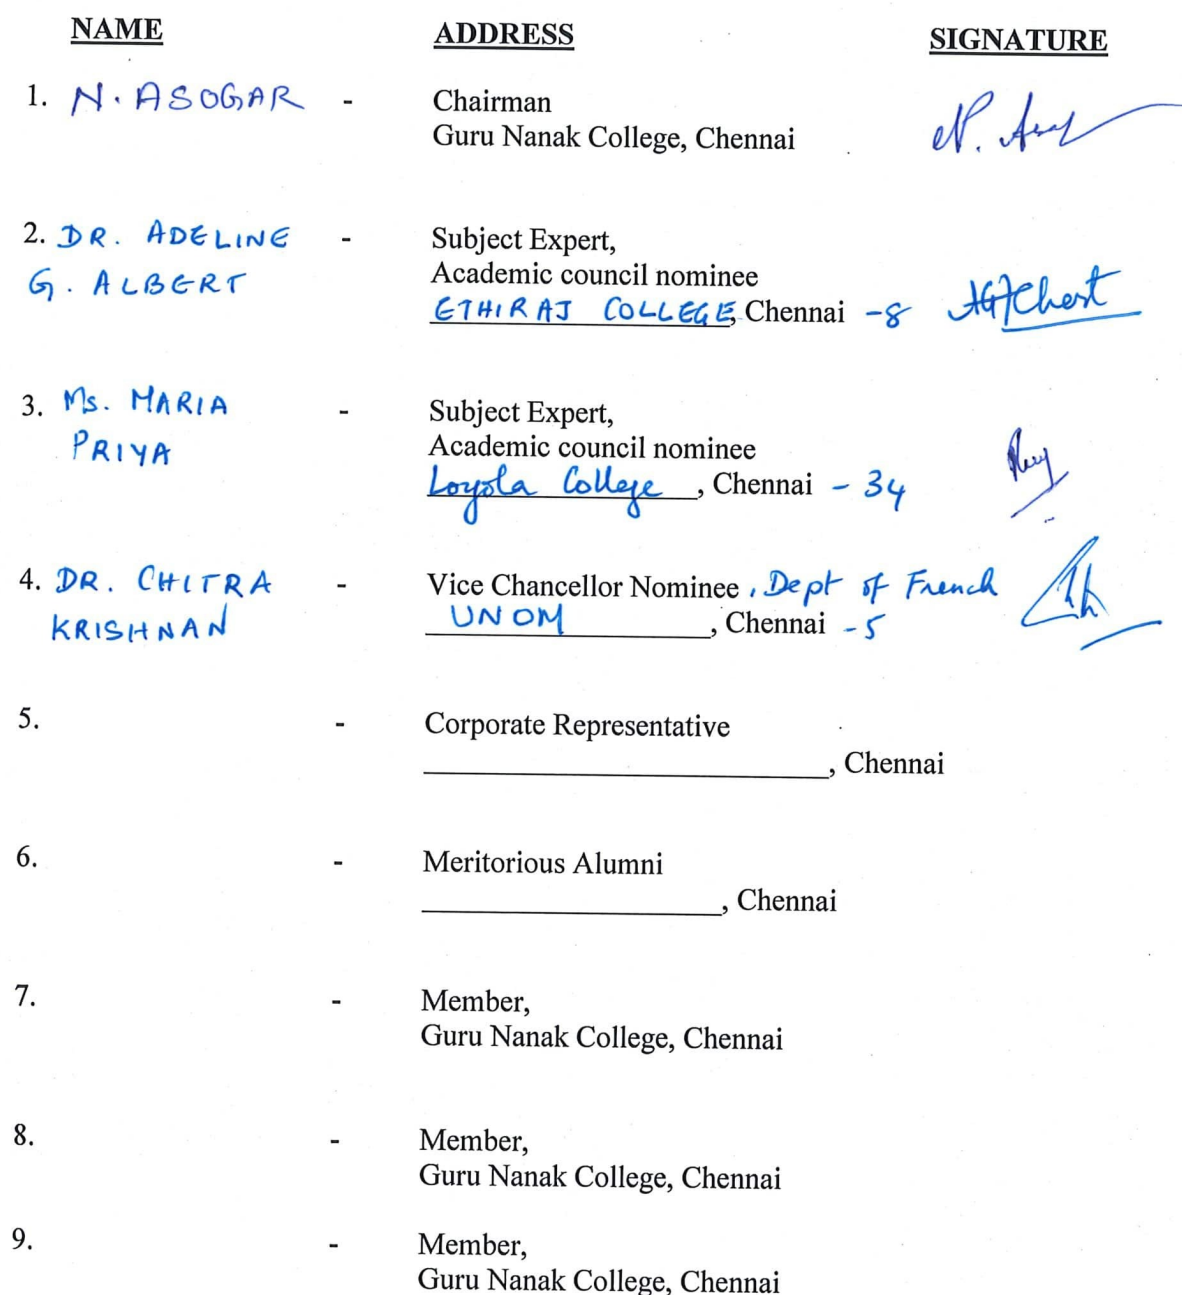 NAME ADDRESS SIGNATURE
1. N. ASOGAR - Chairman
Guru Nanak College, Chennai
2. DR. ADELINE - Subject Expert,
G. ALBERT Academic council nominee
ETHIRAJ COLLEGE, Chennai -8
3. Ms. MARIA - Subject Expert,
PRIYA Academic council nominee
Loyola College, Chennai - 34
4. DR. CHITRA - Vice Chancellor Nominee, Dept of French
KRISHNAN UNOM, Chennai -5
5. - Corporate Representative
, Chennai
6. - Meritorious Alumni
, Chennai
7. - Member,
Guru Nanak College, Chennai
8. - Member,
Guru Nanak College, Chennai
9. - Member,
Guru Nanak College, Chennai